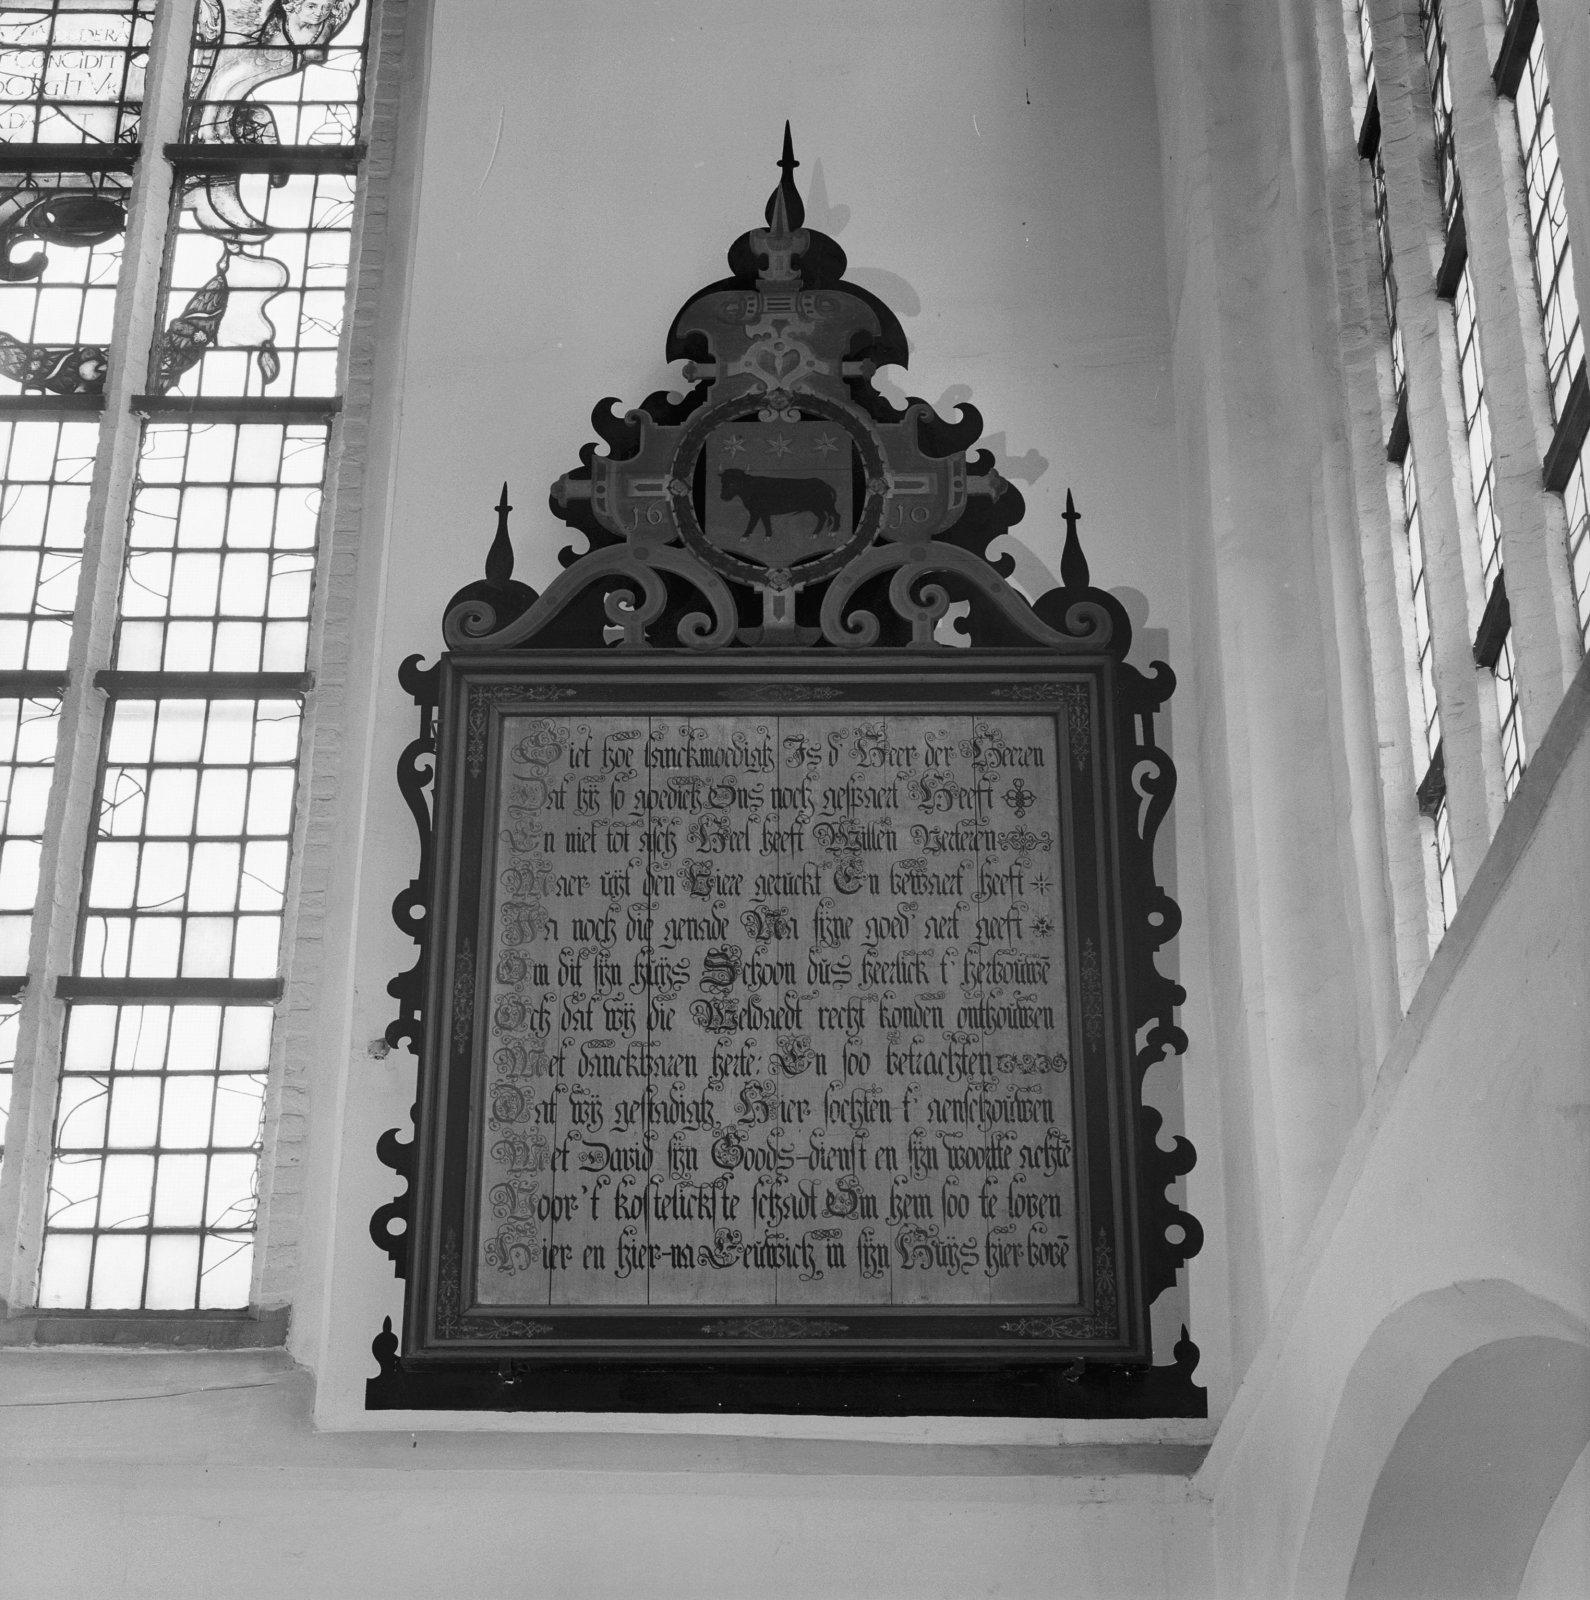 DERA
CONCIDIT
16 10
Siet hoe lanckmoedigh Is d' Heer der Heeren
Dat hÿ so goedich Ons noch gespaert Heeft
En niet tot Heel heeft Willen verteren
Maer uÿt den Viere geruckt En bewaert heeft
Ja noch die genade Na sÿne goed' aert geeft
Om dit sÿn huÿs Schoon dus heerlick t' herbouwē
Och dat wÿ die Weldaedt recht konden onthouwen
Met danckbaren herte: En soo betrachten
Dat wÿ gestadigh Hier sochten t' aenschouwen
Met David sÿn Goods-dienst en sÿn woorts achtē
Voor 't kostelickste schadt Om hem soo te loven
Hier en hier-na Eeuwich in sÿn Huÿs hier bovē